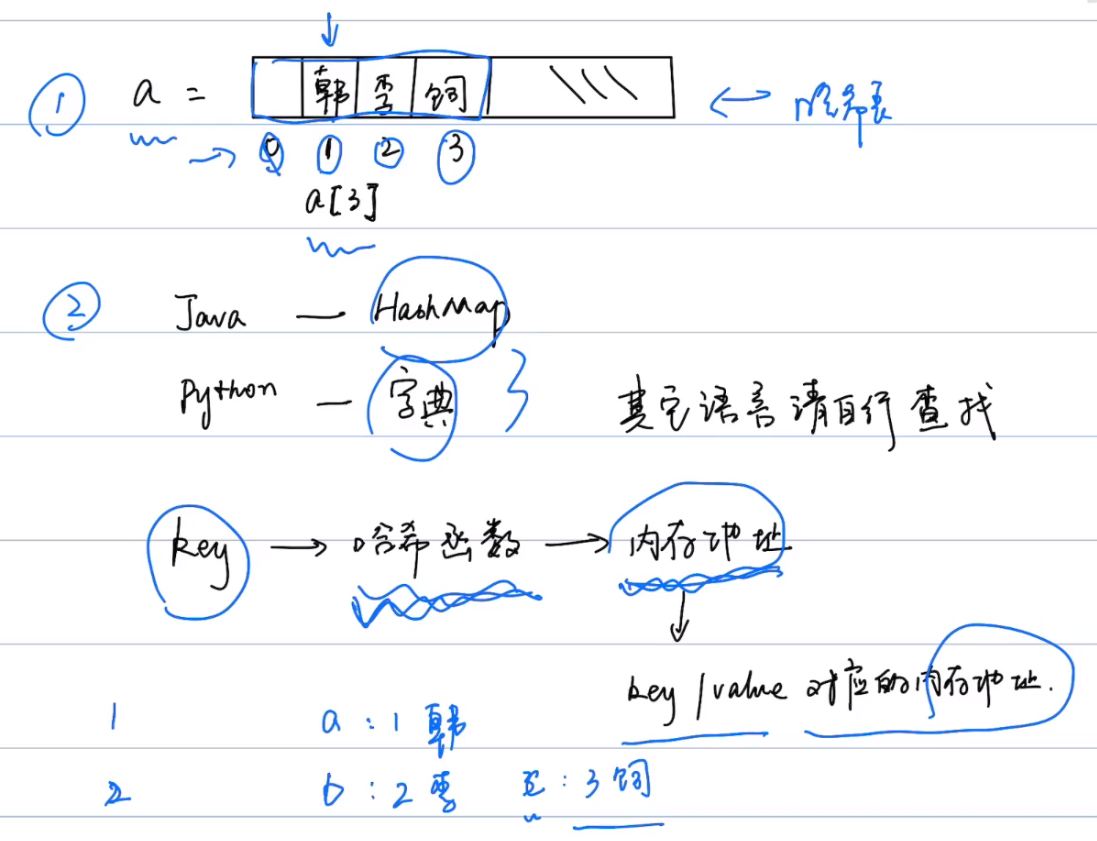 ① a = 韩 李 饲 ↔ 哈希表
0 1 2 3
a[3]
② Java — HashMap
Python — 字典 } 其它语言请自行查找
key → 哈希函数 → 内存地址
key / value 对应的内存地址.
1 a : 1 韩
2 b : 2 李 : 3 饲